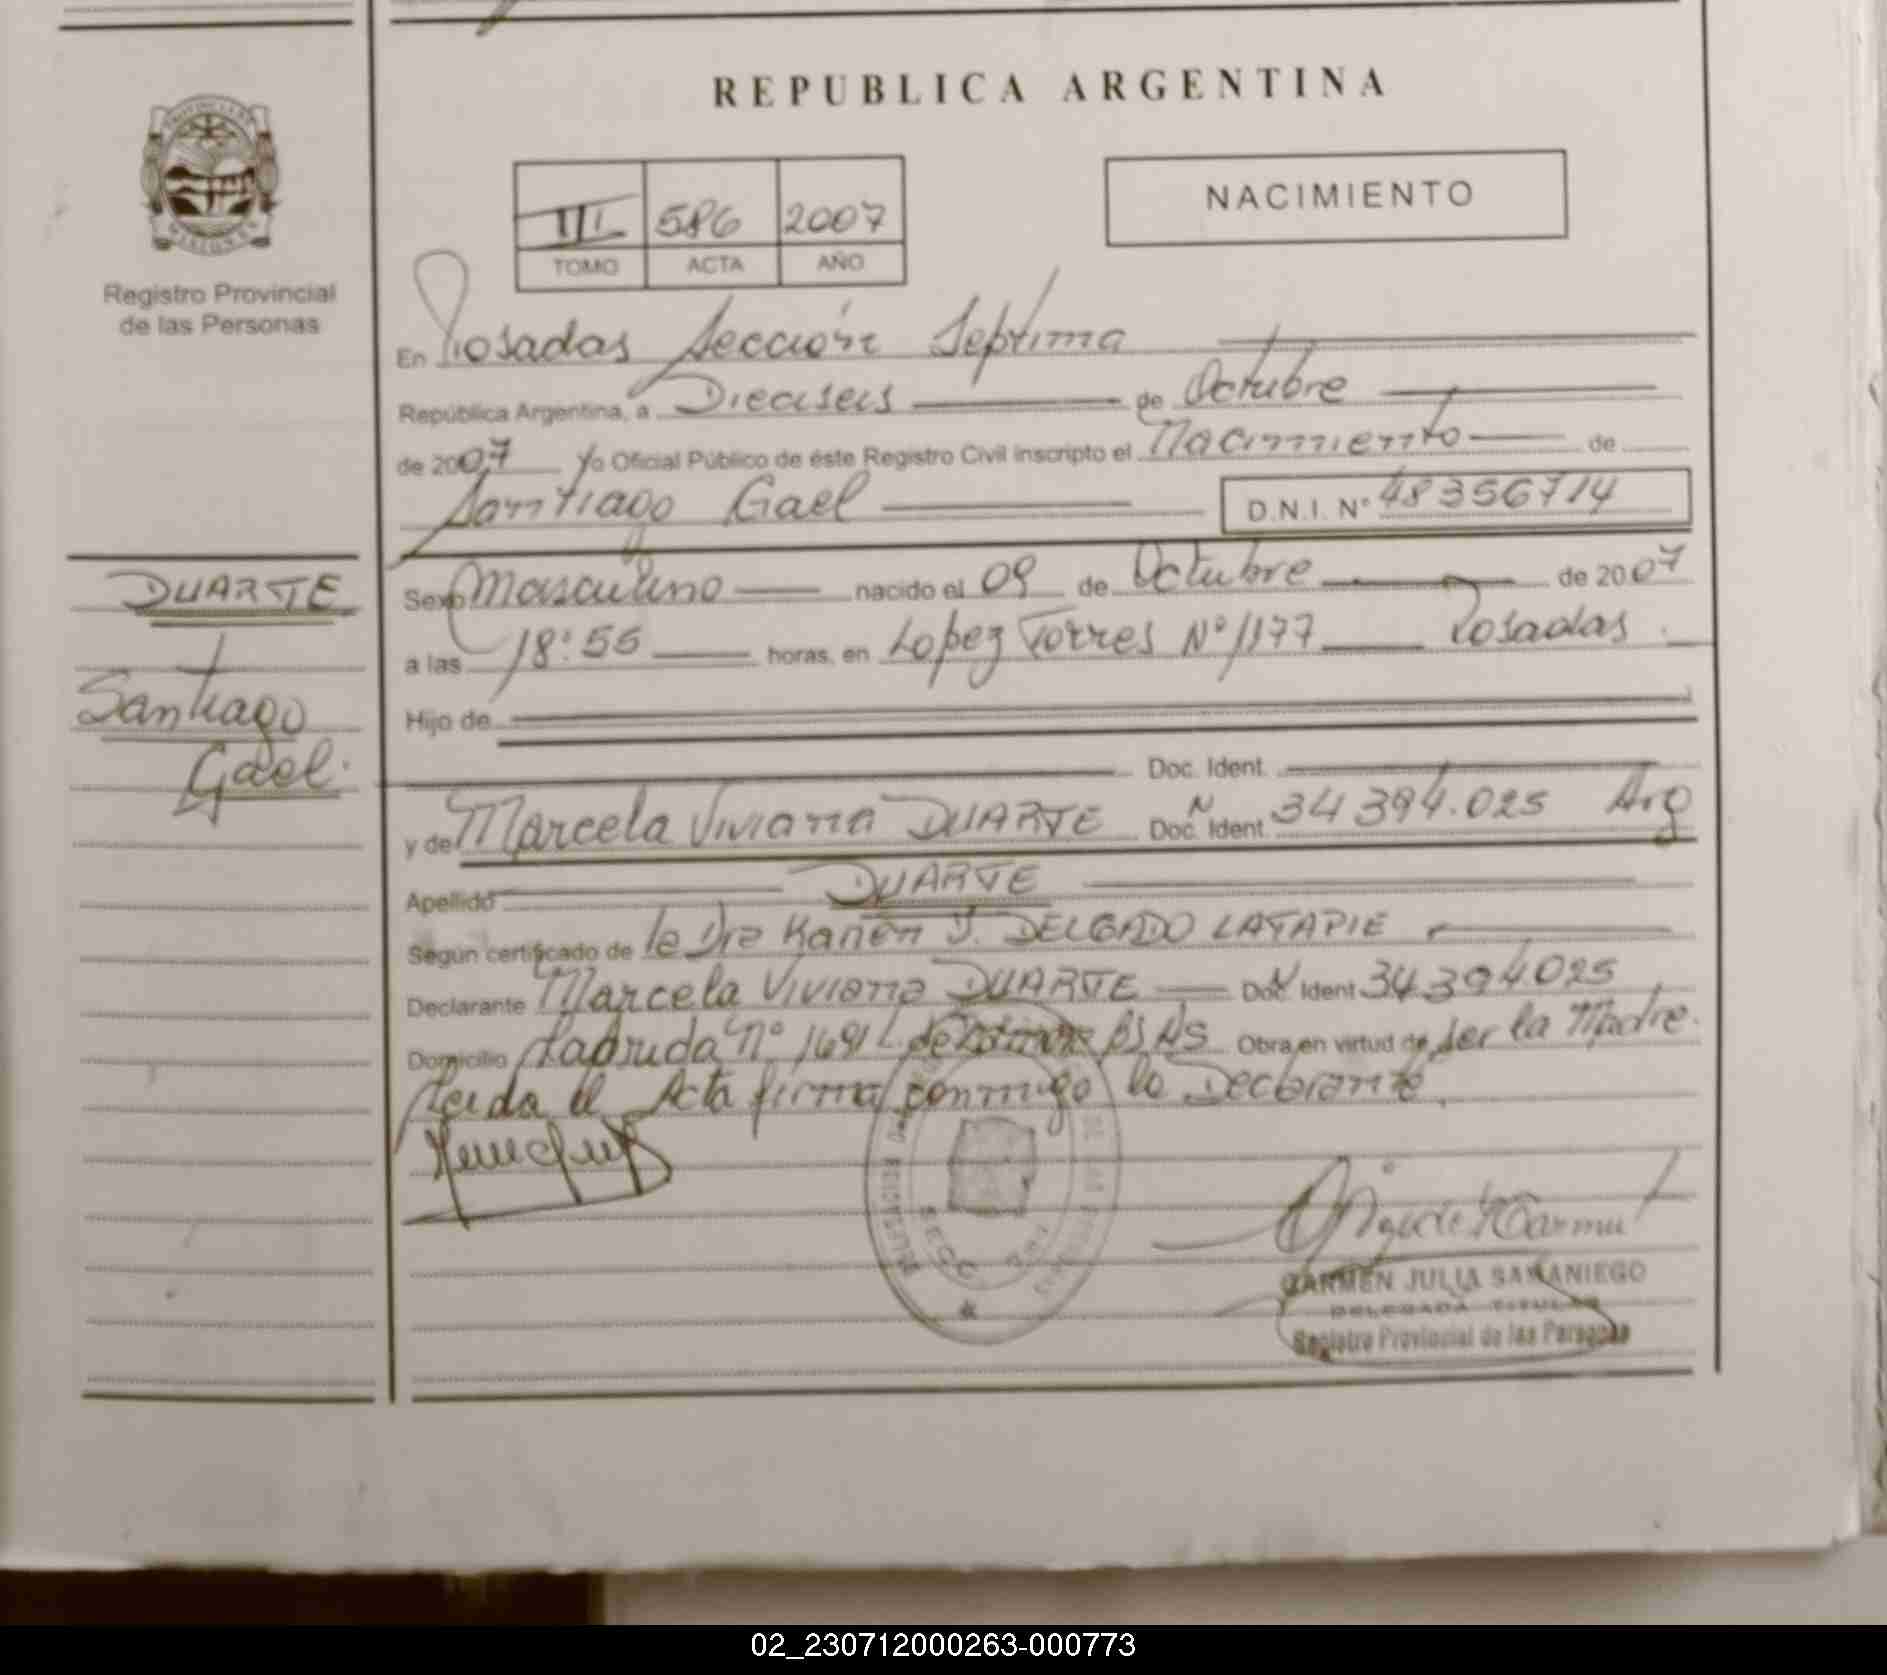 REPUBLICA ARGENTINA
NACIMIENTO
III 586 2007
TOMO ACTA AÑO
Registro Provincial
de las Personas
En Posadas Sección Septima
República Argentina, a Dieciseis de Octubre
de 2007 Yo Oficial Público de éste Registro Civil inscripto el Nacimiento de
Santiago Gael D.N.I. Nº 48356714
Sexo Masculino nacido el 09 de Octubre de 2007
a las 18:55 horas, en Lopez Torres Nº 1177 Posadas.
Hijo de
Doc. Ident.
y de Marcela Viviana DUARTE Doc. Ident. 34394.025 Arg
Apellido DUARTE
Según certificado de la Dra Karien DELGADO LATAPIE
Declarante Marcela Viviana DUARTE Doc. Ident 34394025
Domicilio Nº 1691 BS AS Obra en virtud de ser la Madre.
Leida el Acta firma conmigo la Declarante.
DUARTE
Santiago
Gael.
SECC.
CARMEN JULIA SAMANIEGO
DELEGADA TITULAR
Registro Provincial de las Personas
02_230712000263-000773